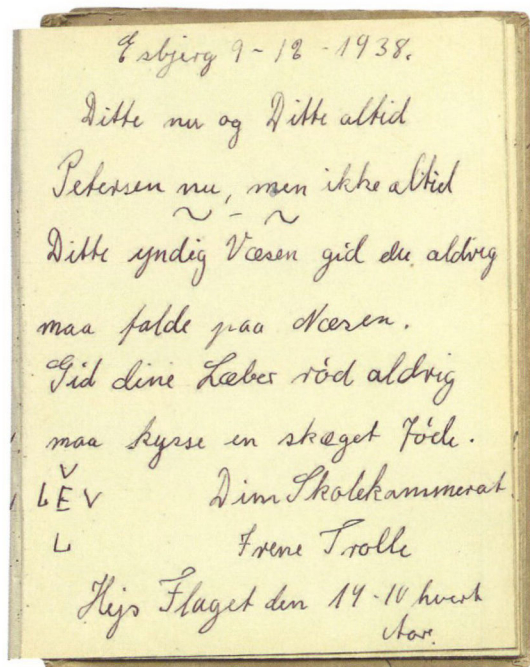 Esbjerg 9-12-1938.
Ditte nu og Ditte altid
Petersen nu, men ikke altid
~ - ~
Ditte yndig Væsen gid du aldrig
maa falde paa Næsen.
Gid dine Læber rød aldrig
maa kysse en skæget Jöde.
V
L E V
L
Din Skolekammerat
Irene Trolle
Hejs Flaget den 14-10 hvert
Aar.